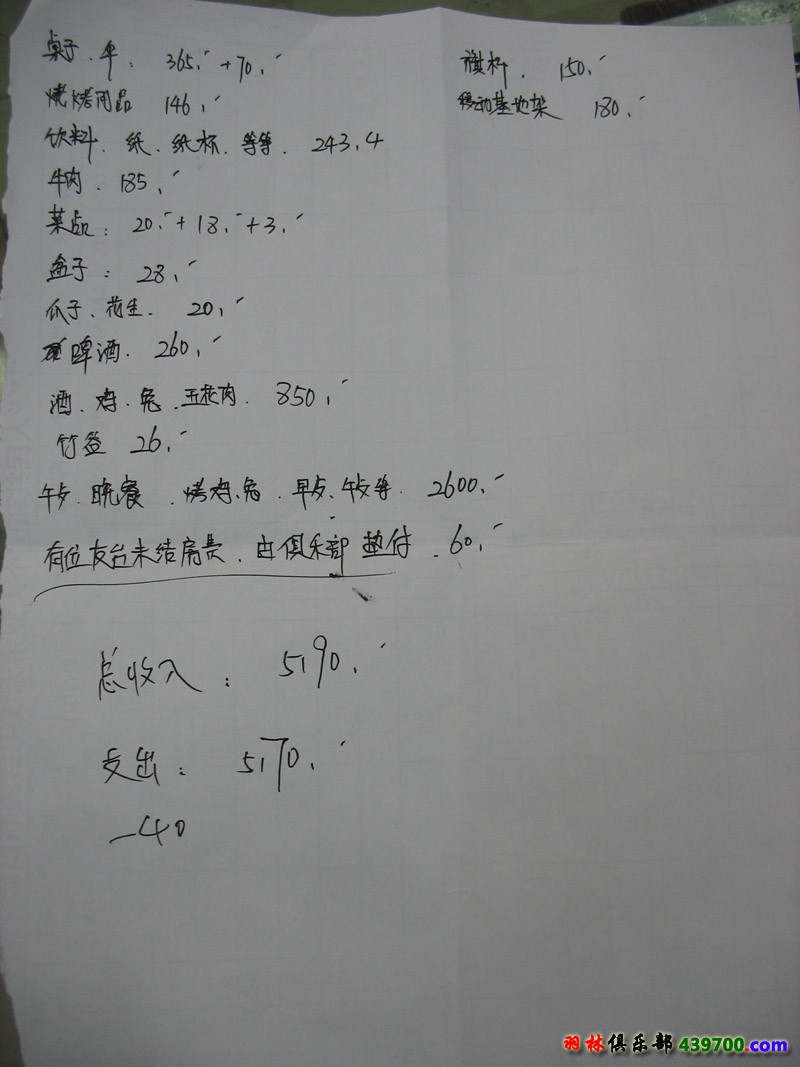 桌子、伞: 365.- + 70.-
烧烤用品 146.-
饮料、纸、纸杯、等等. 243.4
牛肉. 185.-
菜品: 20.- + 18.- + 3.-
盒子: 28.-
爪子、花生. 20.-
啤酒. 260.-
酒、鸡、兔、五花肉. 850.-
竹签 26.-
午歺、晚餐、烤鸡、兔、早歺、午歺等. 2600.-
有位友台未结房费、由俱乐部垫付. 60.-
旗杆. 150.-
移动基地架 180.-
总收入: 5190.-
支出: 5170.-
-40
羽林俱乐部 439700.com